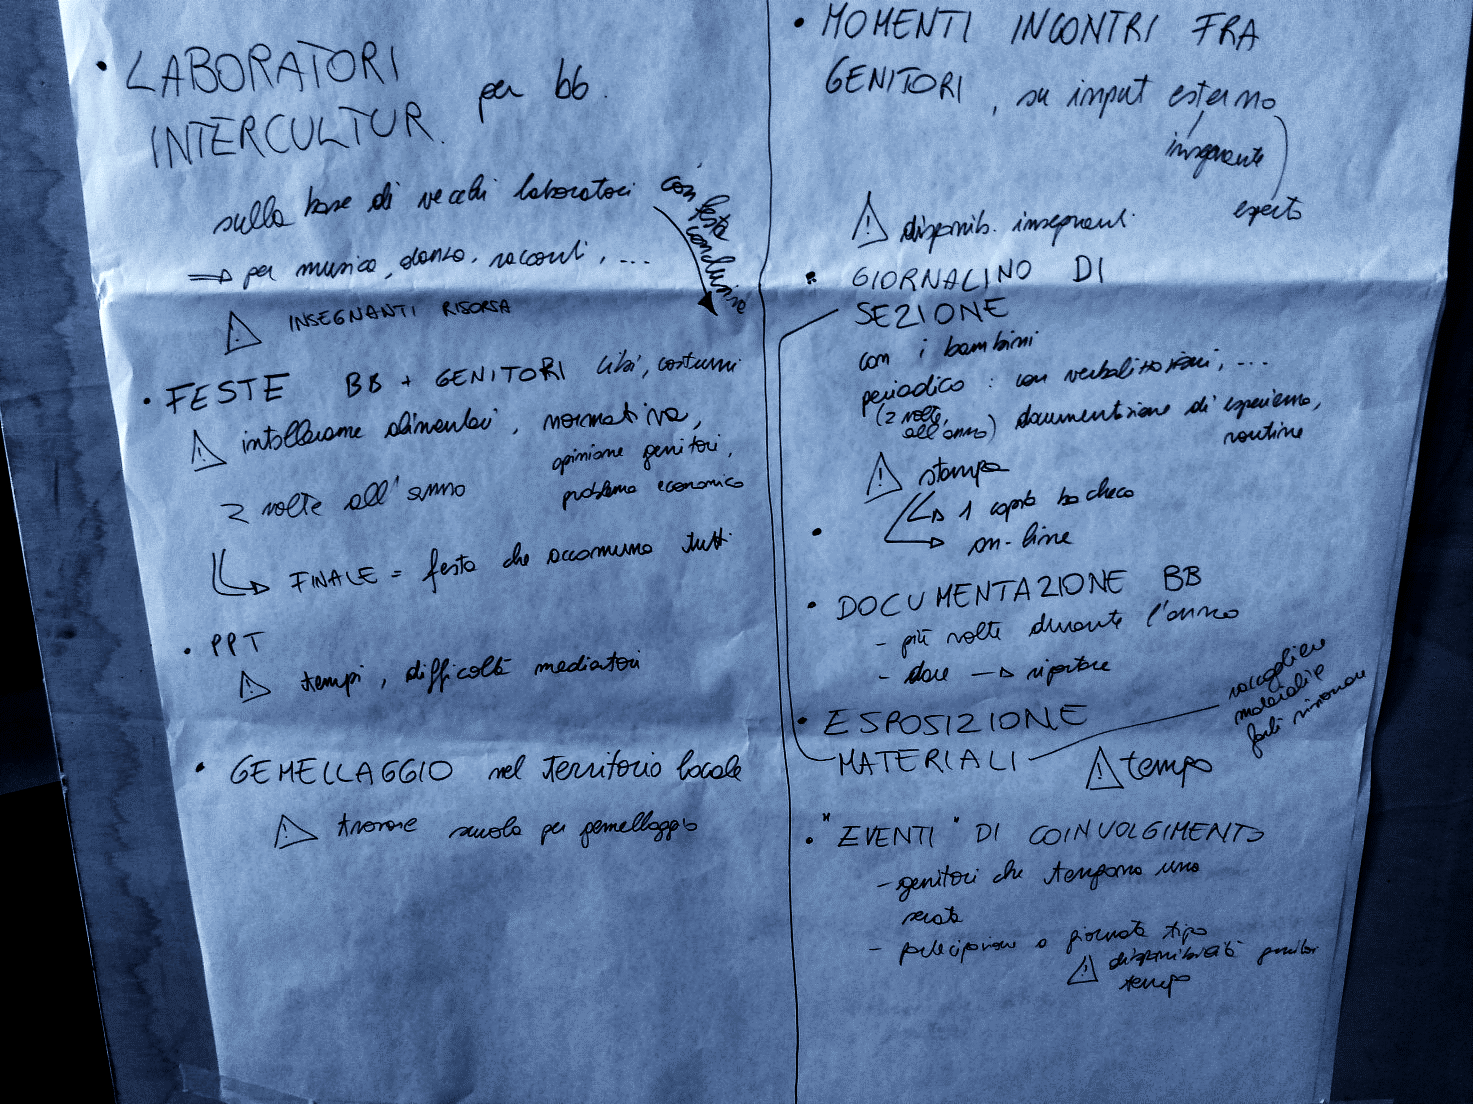 • LABORATORI
INTERCULTUR. per bb.
sulla base di vecchi laboratori con festa conclusiva
⇒ per musica, danza, racconti, ...
⚠ INSEGNANTI RISORSA
• FESTE BB + GENITORI cibi, costumi
⚠ intolleranze alimentari, normativa,
opinione genitori,
problema economico
2 volte all'anno
FINALE = festa che accomuna tutti
• PPT
⚠ tempi, difficoltà mediatori
• GEMELLAGGIO nel territorio locale
⚠ trovare scuola per gemellaggio
• MOMENTI INCONTRI FRA
GENITORI, su input esterno
insegnante
esperto
⚠ disponib. insegnanti
• GIORNALINO DI
SEZIONE
con i bambini
periodico: con verbalizzazioni, ...
(2 volte
all'anno) documentazione di esperienze,
routine
⚠ stampa
1 copia bacheca
on-line
•
• DOCUMENTAZIONE BB
- più volte durante l'anno
- dare → riportare
• ESPOSIZIONE
MATERIALI
raccogliere
materiali e
farli
⚠ tempo
• "EVENTI" DI COINVOLGIMENTO
- genitori che tengono una
serata
- partecipazione a giornata tipo
⚠ disponibilità genitori
tempo